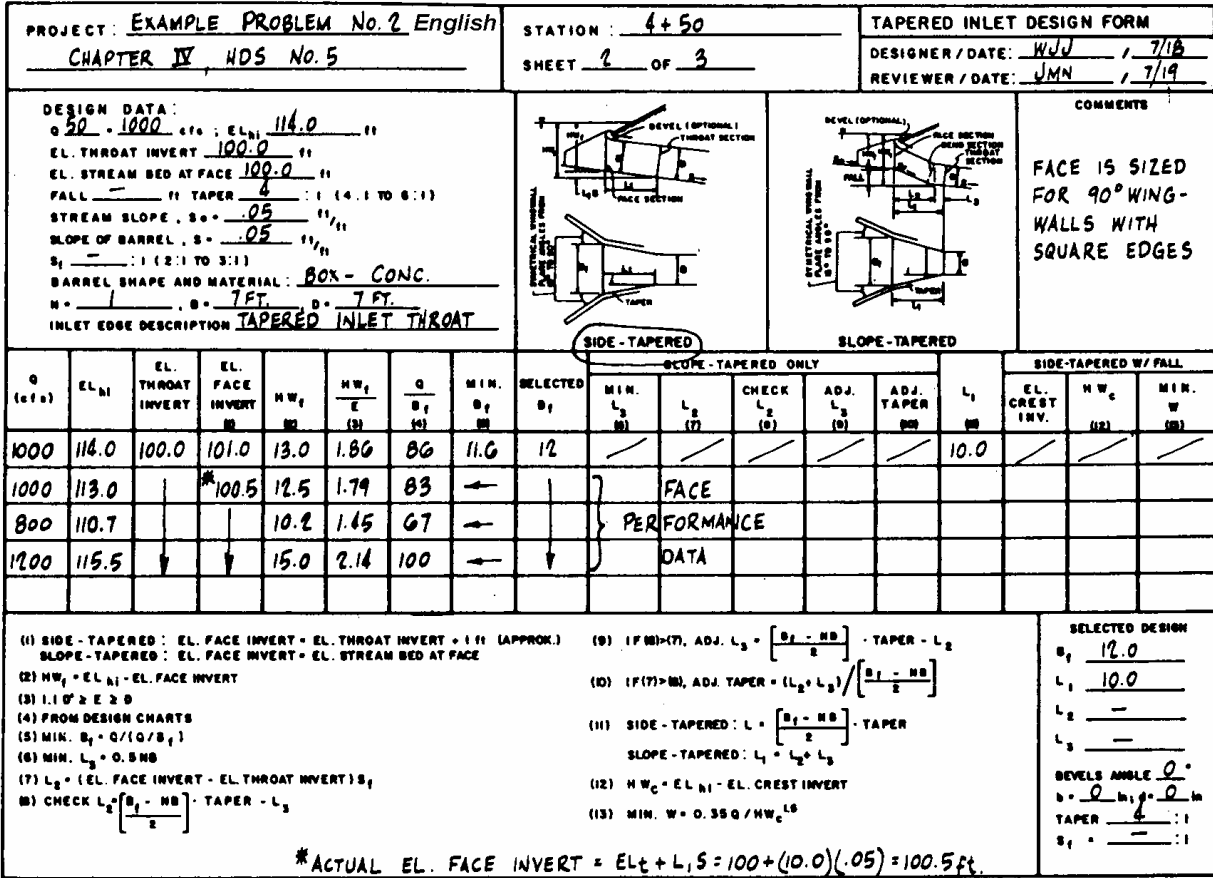 PROJECT: EXAMPLE PROBLEM No. 2 English
CHAPTER IV, HDS No. 5
STATION: 4+50
SHEET 2 OF 3
TAPERED INLET DESIGN FORM
DESIGNER / DATE: WJJ / 7/18
REVIEWER / DATE: JMN / 7/19
DESIGN DATA:
Q 50 = 1000 cfs ; ELhi 114.0 ft
EL. THROAT INVERT 100.0 ft
EL. STREAM BED AT FACE 100.0 ft
FALL — ft TAPER 4 : 1 (4:1 TO 6:1)
STREAM SLOPE, So = .05 ft/ft
SLOPE OF BARREL, S = .05 ft/ft
Sf — : 1 (2:1 TO 3:1)
BARREL SHAPE AND MATERIAL: BOX - CONC.
N = 1, B = 7 FT., D = 7 FT.
INLET EDGE DESCRIPTION TAPERED INLET THROAT
BEVEL (OPTIONAL)
THROAT SECTION
FACE SECTION
SYMETRICAL WINGWALL
FLARE ANGLES FROM
15° TO 90°
TAPER
SIDE-TAPERED
BEVEL (OPTIONAL)
FACE SECTION
BEND SECTION
THROAT SECTION
FALL
SYMETRICAL WINGWALL
FLARE ANGLES FROM
15° TO 90°
TAPER
SLOPE-TAPERED
COMMENTS
FACE IS SIZED
FOR 90° WING-
WALLS WITH
SQUARE EDGES
SLOPE-TAPERED ONLY
SIDE-TAPERED W/ FALL
Q (cfs) ELhi EL. THROAT INVERT EL. FACE INVERT (1) HWf (2) HWf/E (3) Q/Bf (4) MIN. Bf (5) SELECTED Bf MIN. L3 (6) L2 (7) CHECK L2 (8) ADJ. L3 (9) ADJ. TAPER (10) L1 (11) EL. CREST INV. HWc (12) MIN. W (13)
1000 114.0 100.0 101.0 13.0 1.86 86 11.6 12 / / / / / 10.0 / / /
1000 113.0 ↓ *100.5 12.5 1.79 83 ← ↓ } FACE
800 110.7 ↓ ↓ 10.2 1.45 67 ← ↓ } PERFORMANCE
1200 115.5 ↓ ↓ 15.0 2.14 100 ← ↓ } DATA
(1) SIDE-TAPERED: EL. FACE INVERT = EL. THROAT INVERT + 1 ft (APPROX.)
SLOPE-TAPERED: EL. FACE INVERT = EL. STREAM BED AT FACE
(2) HWf = ELhi - EL. FACE INVERT
(3) 1.1 D ≥ E ≥ D
(4) FROM DESIGN CHARTS
(5) MIN. Bf = Q/(Q/Bf)
(6) MIN. L3 = 0.5NB
(7) L2 = (EL. FACE INVERT - EL. THROAT INVERT) Sf
(8) CHECK L2 = [Bf - NB / 2] · TAPER - L3
(9) IF (8)>(7), ADJ. L3 = [Bf - NB / 2] · TAPER - L2
(10) IF (7)>(8), ADJ. TAPER = (L2 + L3) / [Bf - NB / 2]
(11) SIDE-TAPERED: L = [Bf - NB / 2] · TAPER
SLOPE-TAPERED: L1 = L2 + L3
(12) HWc = ELhi - EL. CREST INVERT
(13) MIN. W = 0.35 Q / HWc 1.5
SELECTED DESIGN
Bf 12.0
L1 10.0
L2 —
L3 —
BEVELS ANGLE 0°
b = 0 in; d = 0 in
TAPER 4 : 1
Sf = — : 1
*ACTUAL EL. FACE INVERT = ELt + L1S = 100 + (10.0)(.05) = 100.5 ft.